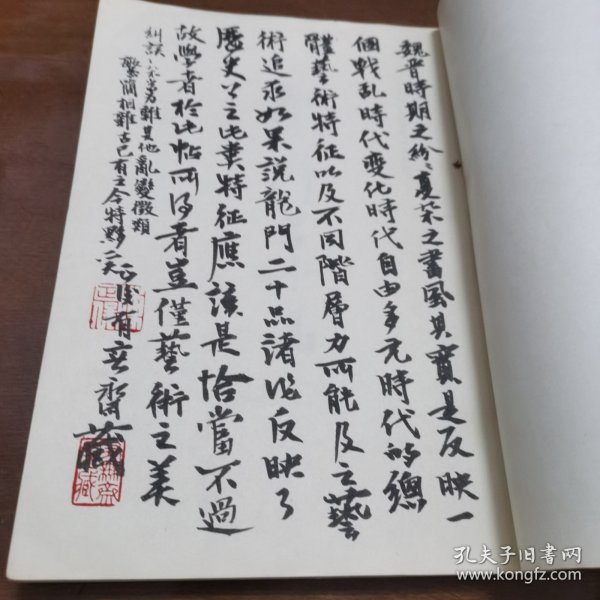 魏晋時期之紛々复杂之書風其實是反映一
個戰乱時代變化時代自由多元時代的總
體藝術特征以及不同階層力所能及之藝
術追求如果说龍門二十品諸作反映了
歷史上之此类特征應該是恰當不過
故學者於此帖所得者豈僅藝術之美
糾誤 雜其他亂變徵類
繁簡相雜古已有之今特點
有 齋藏
孔夫子旧書网
www.kongfz.com